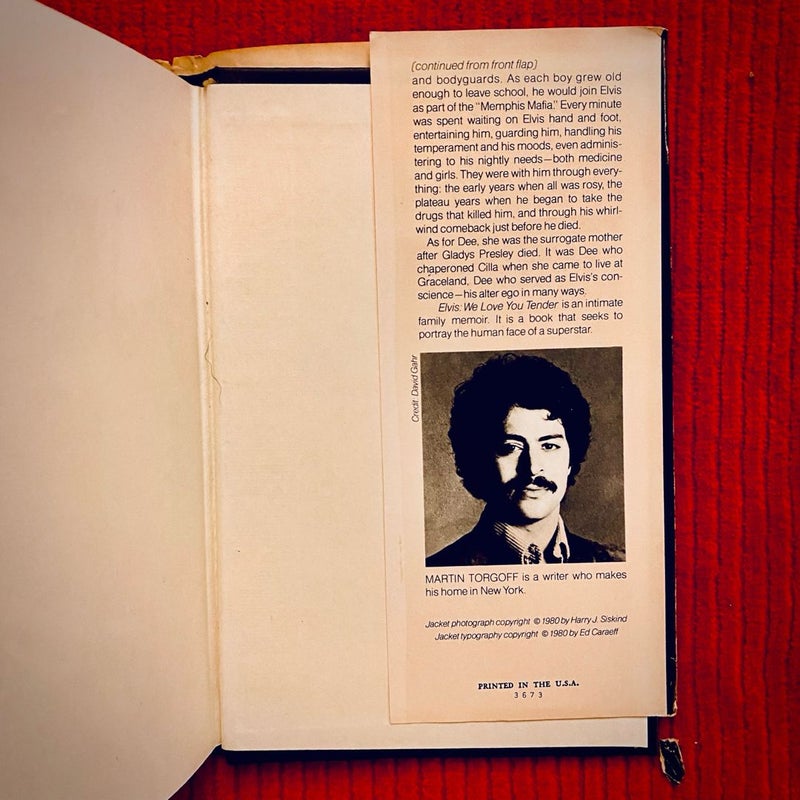 (continued from front flap)
and bodyguards. As each boy grew old
enough to leave school, he would join Elvis
as part of the "Memphis Mafia." Every minute
was spent waiting on Elvis hand and foot,
entertaining him, guarding him, handling his
temperament and his moods, even adminis-
tering to his nightly needs—both medicine
and girls. They were with him through every-
thing: the early years when all was rosy, the
plateau years when he began to take the
drugs that killed him, and through his whirl-
wind comeback just before he died.
As for Dee, she was the surrogate mother
after Gladys Presley died. It was Dee who
chaperoned Cilla when she came to live at
Graceland, Dee who served as Elvis's con-
science—his alter ego in many ways.
Elvis: We Love You Tender is an intimate
family memoir. It is a book that seeks to
portray the human face of a superstar.
Credit: David Gahr
MARTIN TORGOFF is a writer who makes
his home in New York.
Jacket photograph copyright © 1980 by Harry J. Siskind
Jacket typography copyright © 1980 by Ed Caraeff
PRINTED IN THE U.S.A.
3673